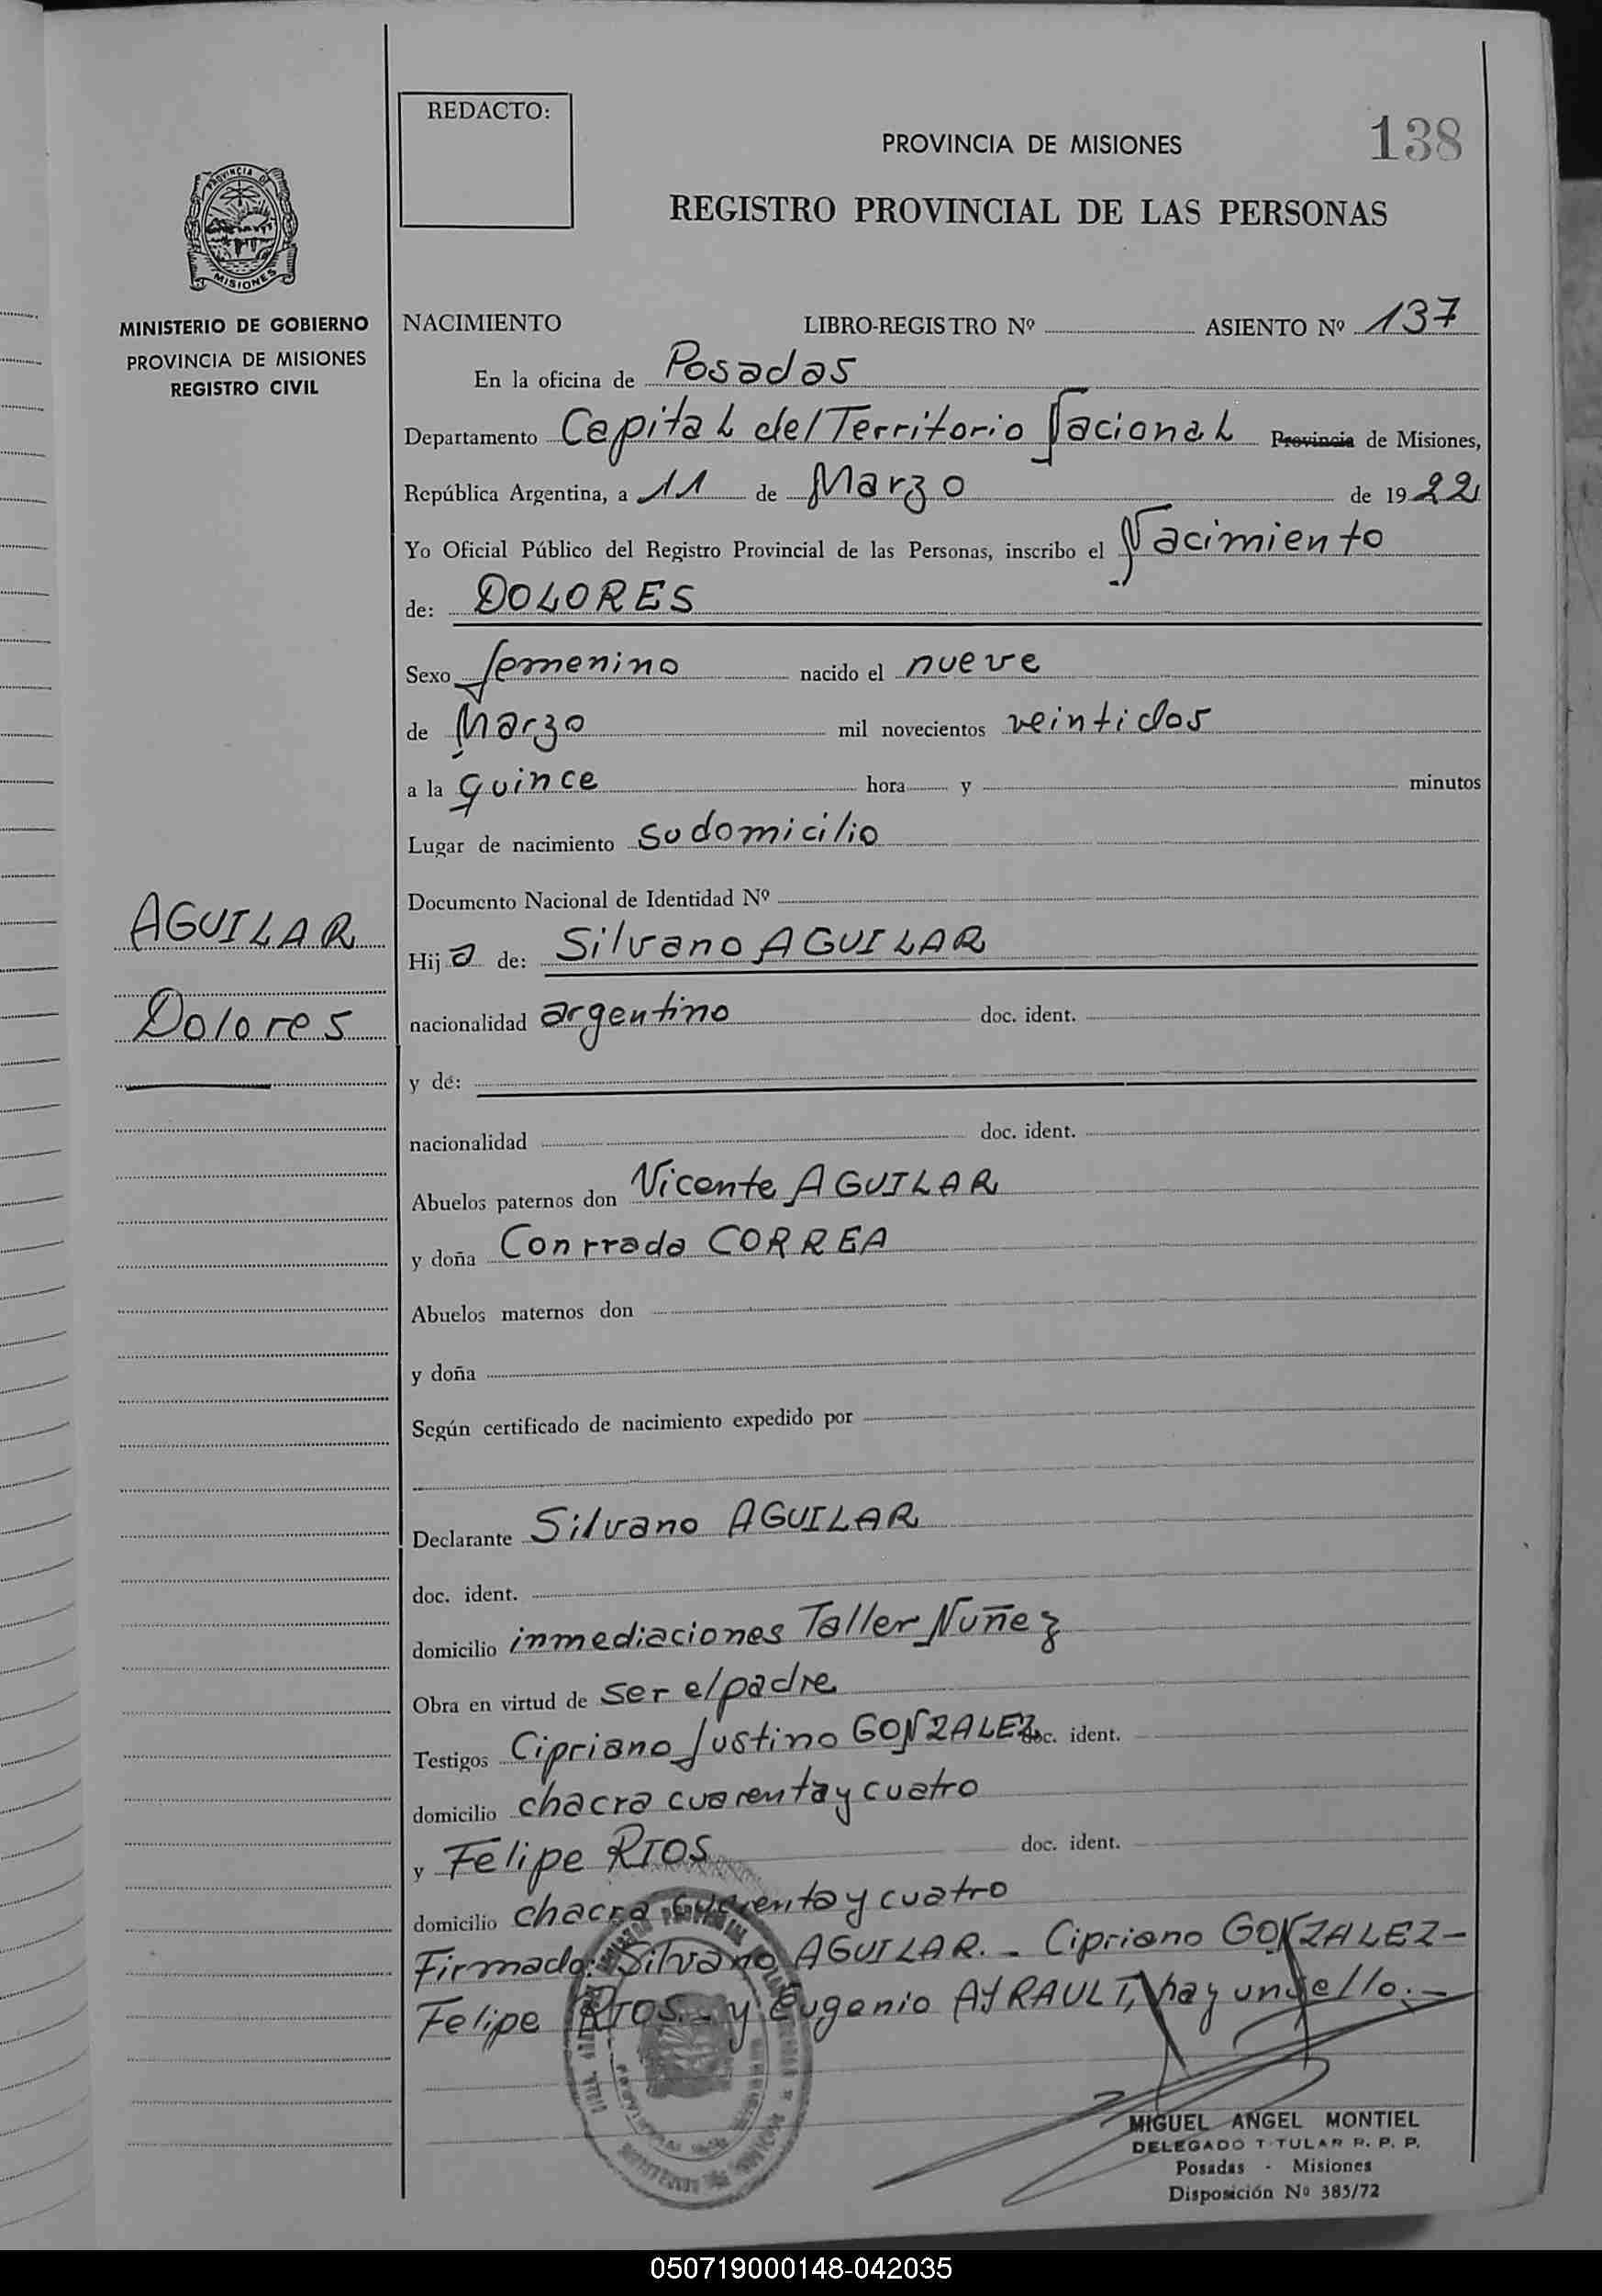 REDACTO:
PROVINCIA DE MISIONES
138
REGISTRO PROVINCIAL DE LAS PERSONAS
PROVINCIA DE
MISIONES
MINISTERIO DE GOBIERNO
PROVINCIA DE MISIONES
REGISTRO CIVIL
NACIMIENTO LIBRO-REGISTRO Nº ASIENTO Nº 137
En la oficina de Posadas
Departamento Capital del Territorio Nacional Provincia de Misiones,
República Argentina, a 11 de Marzo de 1922
Yo Oficial Público del Registro Provincial de las Personas, inscribo el Nacimiento
de: DOLORES
Sexo femenino nacido el nueve
de Marzo mil novecientos veintidos
a la quince hora y minutos
Lugar de nacimiento su domicilio
Documento Nacional de Identidad Nº
AGUILAR
Dolores
Hija de: Silvano AGUILAR
nacionalidad argentino doc. ident.
y de:
nacionalidad doc. ident.
Abuelos paternos don Vicente AGUILAR
y doña Conrrada CORREA
Abuelos maternos don
y doña
Según certificado de nacimiento expedido por
Declarante Silvano AGUILAR
doc. ident.
domicilio inmediaciones Taller Nuñez
Obra en virtud de ser el padre
Testigos Cipriano Justino GONZALEZ doc. ident.
domicilio chacra cuarenta y cuatro
y Felipe RIOS doc. ident.
domicilio chacra cuarenta y cuatro
Firmado: Silvano AGUILAR. - Cipriano GONZALEZ -
Felipe RIOS. - y Eugenio AYRAULT, hay un sello. -
MIGUEL ANGEL MONTIEL
DELEGADO TITULAR R. P. P.
Posadas - Misiones
Disposición Nº 385/72
050719000148-042035